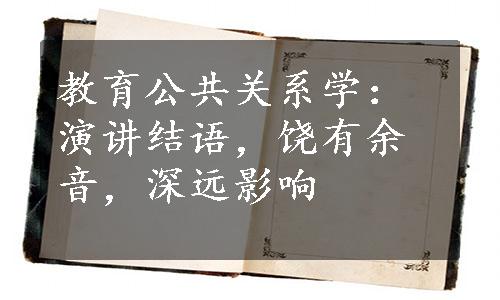 教育公共关系学：
演讲结语，饶有余
音，深远影响